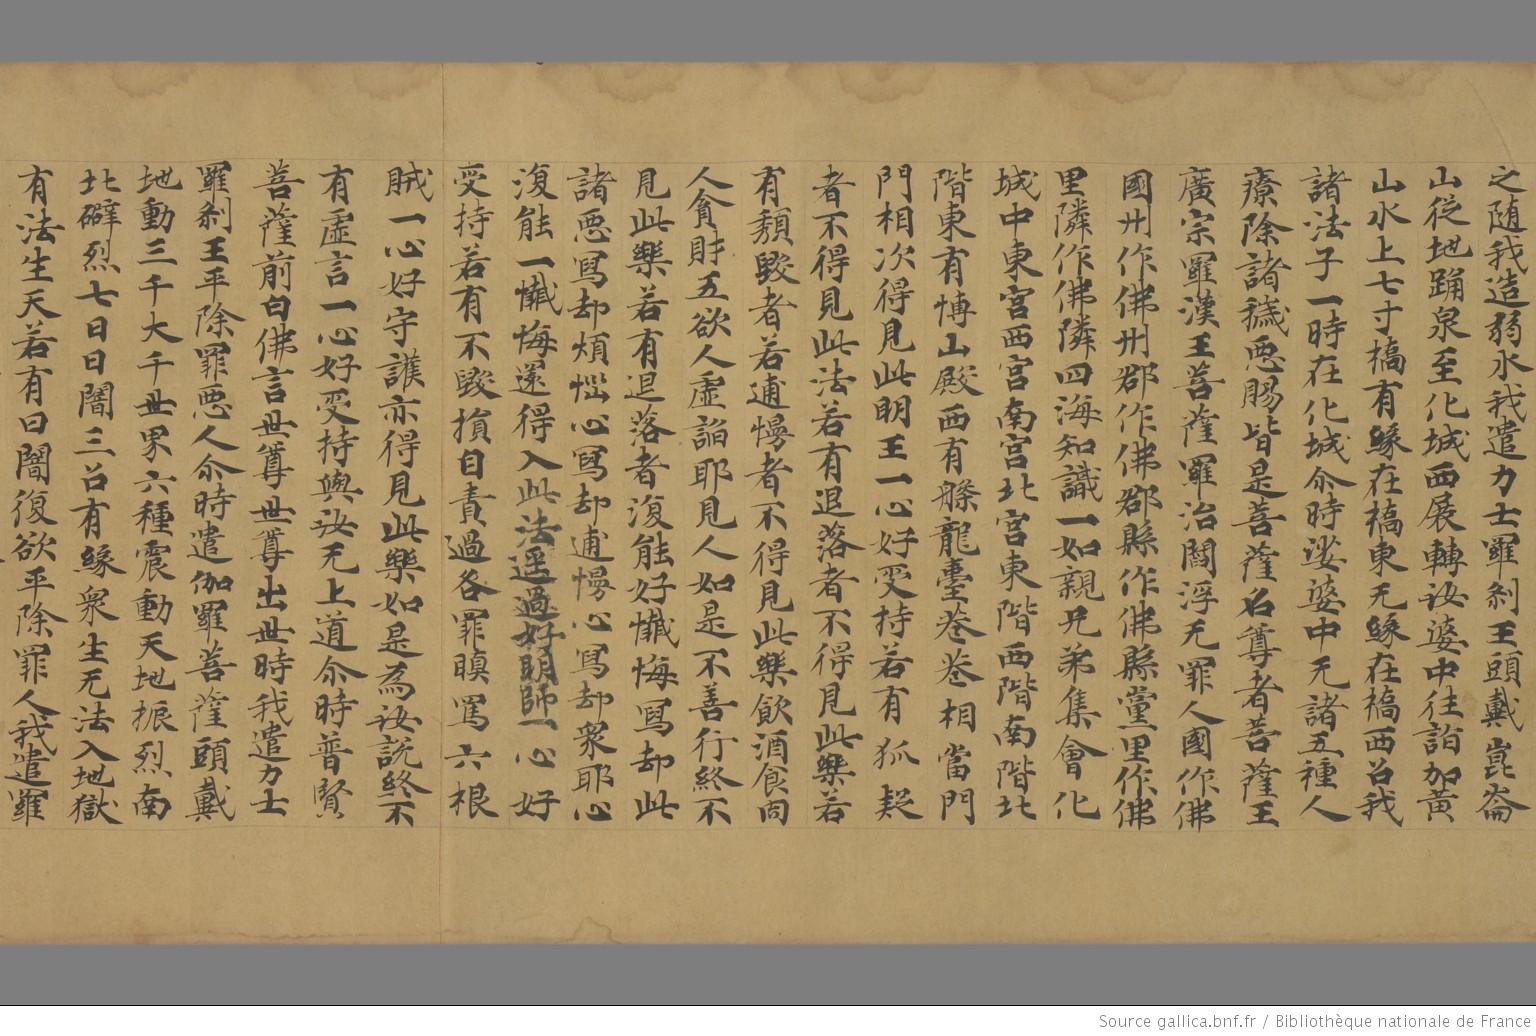 之随我造弱水我遣力士羅刹王頭戴崑崙
山從地踊泉至化城西展轉汝婆中往詣加黄
山水上七寸橋有緣在橋東无緣在橋西召我
諸法子一時在化城尒時娑婆中无諸五種人
療除諸穢惡賜皆是菩薩名尊者菩薩王
廣宗羅漢王菩薩羅治閻浮无罪人國作佛
國州作佛州郡作佛郡縣作佛縣黨里作佛
里隣作佛隣四海知識一如親兄弟集會化
城中東宮西宮南宮北宮東階西階南階北
階東有博山殿西有槃龍臺巷巷相當門
門相次得見此明王一心好受持若有狐疑
者不得見此法若有退落者不得見此樂若
有頽毀者若逋慢者不得見此樂飲酒食肉
人貪財五欲人虛諂耶見人如是不善行終不
見此樂若有退落者復能好懺悔寫却此
諸惡寫却煩惱心寫却逋慢心寫却衆耶心
復能一懺悔還得入此法遥過好明師一心好
受持若有不毀損自責過各罪瞋罵六根
賊一心好守護亦得見此樂如是為汝説終不
有虛言一心好受持與汝无上道尒時普賢
菩薩前白佛言世尊世尊出世時我遣力士
羅刹王平除罪惡人尒時遣伽羅菩薩頭戴
地動三千大千世界六種震動天地振烈南
北礔烈七日日闇三召有緣衆生无法入地獄
有法生天若有曰闇復欲平除罪人我遣羅